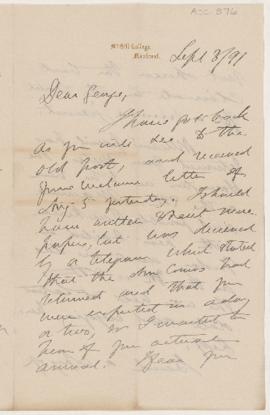 Acc 376
McGill College,
Montreal.
Sept 3/91
Dear George,
I have got back
as you will see to the
old post, and received
your welcome letter of
Aug 5 yesterday. I should
have written & sent news-
papers, but was deceived
by a telegram which stated
that the Comis had
returned and that you
were expected in a day
or two, so I waited to
hear of your actual
arrival. you